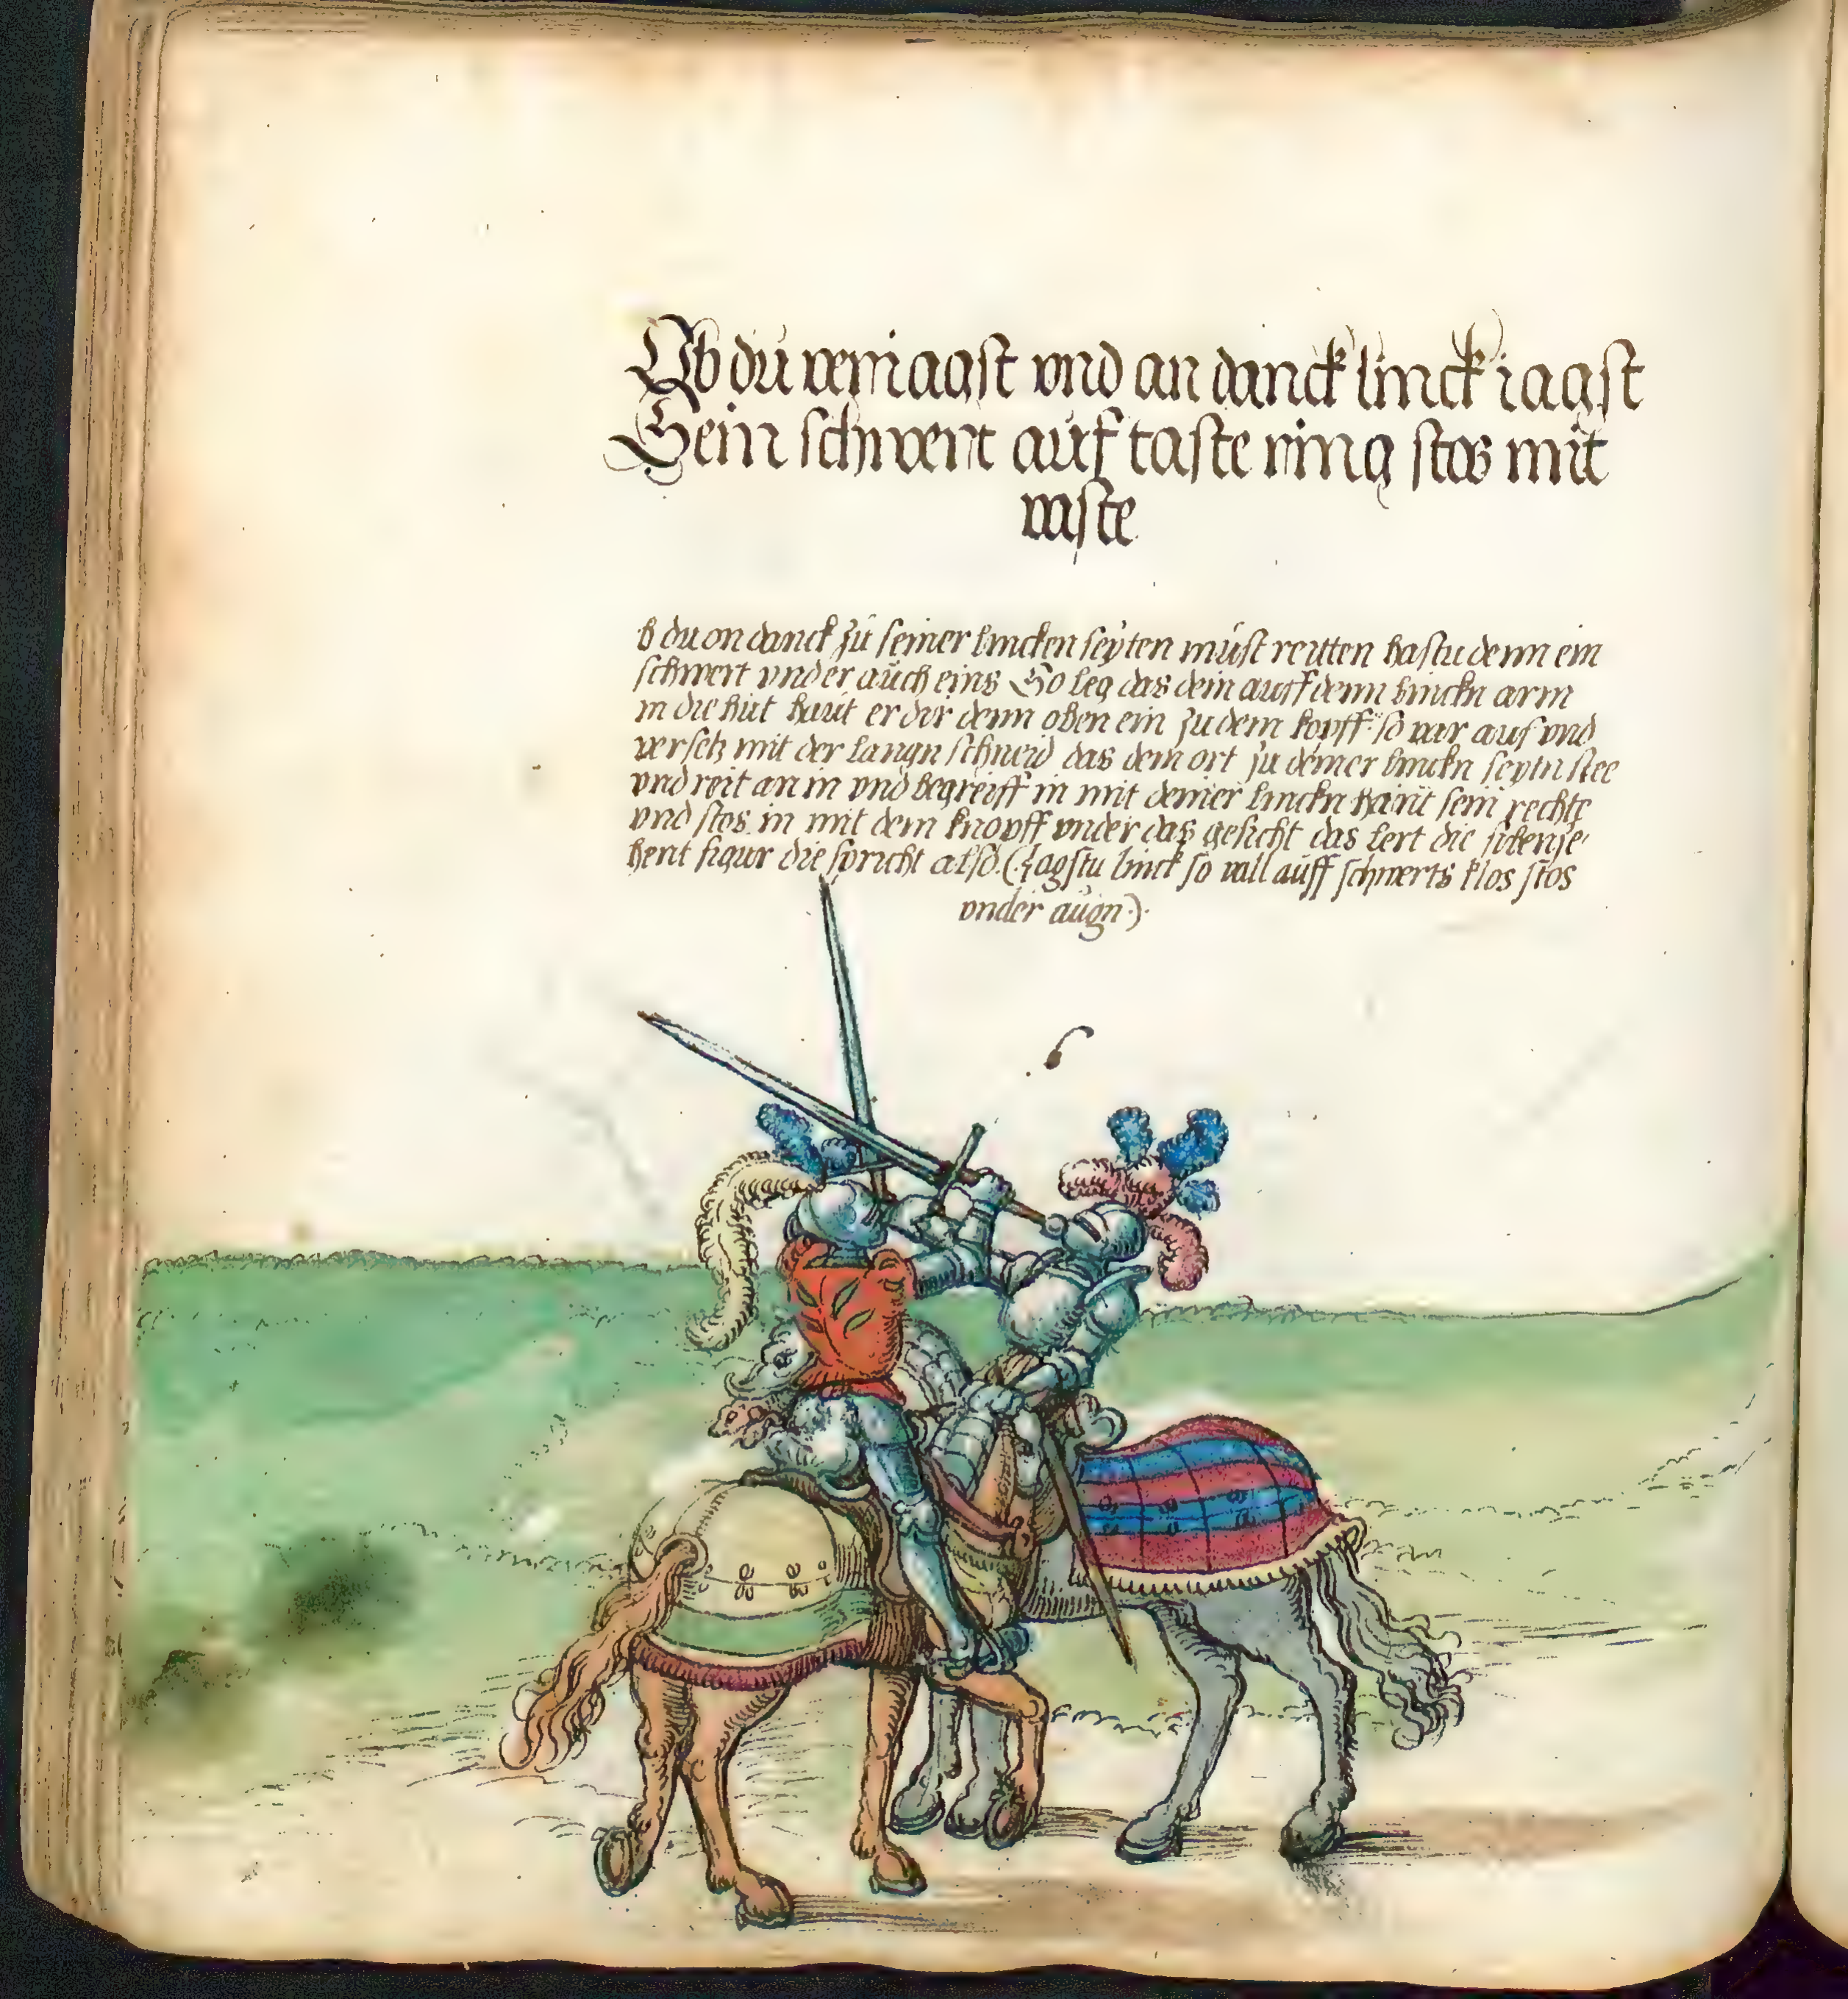 Ob du vermagst vnd an danck linck iagst
Sein schwert auf taste ring stos mit
vaste
b du on danck zu seiner lincken seyten must reitten hastu denn ein
schwert vnd er auch eins So leg das dein auff denn linckn arm
in die hut haut er dir denn oben ein zu dem kopff so var auf vnd
versetz mit der langn schneid das dem ort zu deiner linckn seytn stee
vnd reit an in vnd begreiff in mit deiner linckn hant sein rechte
vnd stos in mit dem knopff vnder das gesicht das lert die sibenze-
hent figur die spricht also (Jagstu linck so vall auff schwerts klos stos
vnder augn).